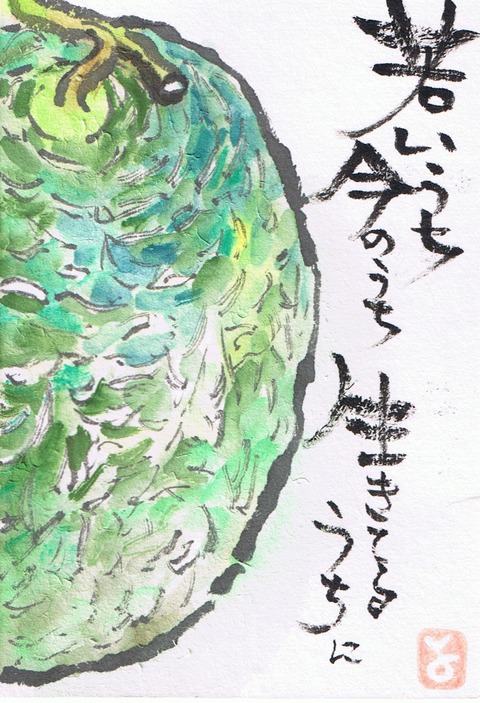 若いうち
今のうち
生きてる
うちに
よ